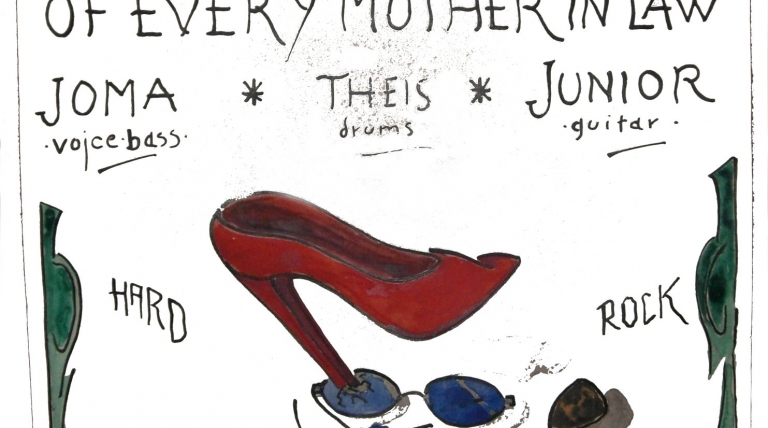 OF EVERY MOTHER IN LAW
JOMA * THEIS * JUNIOR
·voice·bass· drums ·guitar·
HARD ROCK